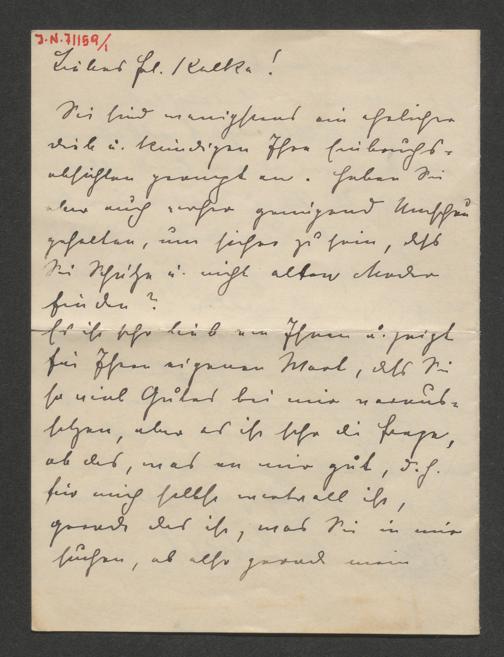 J.N. 71159/1
Liebes Frl. Kalka!
Sie sind wenigstens ein ehrlicher
Dieb u. kündigen Ihre Einbruchs-
absichten prompt an. Haben Sie
aber auch vorher genügend Umschau
gehalten, um sicher zu sein, daß
Sie Schätze u. nicht alten Moder
finden?
Es ist sehr lieb von Ihnen u. zeigt
für Ihren eigenen Wert, daß Sie
so viel Gutes bei mir voraus-
setzen, aber es ist sehr die Frage,
ob das, was an mir gut, d.h.
für mich selbst wertvoll ist,
gerade das ist, was Sie in mir
suchen, ob also gerade mein